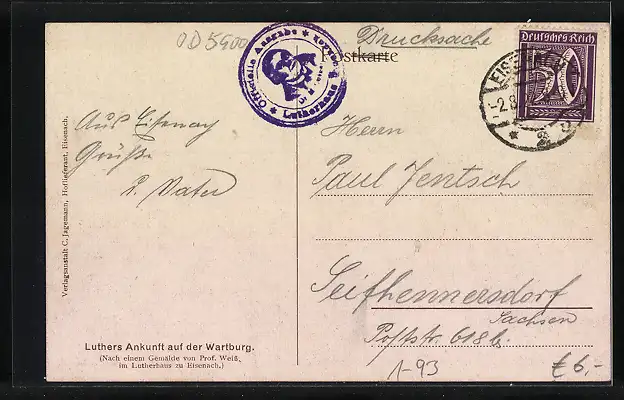 OD5900
Postkarte
Drucksache
Offizielle Ausgabe * Lutherhaus
Deutsches Reich
50
EISENACH
-2.8.
Aus Eisenach
Grüße
Vater
Herrn
Paul Jentsch
Seifhennersdorf
Sachsen
Poststr. 618b.
Verlagsanstalt C. Jagemann, Hoflieferant, Eisenach.
Luthers Ankunft auf der Wartburg.
(Nach einem Gemälde von Prof. Weiß,
im Lutherhaus zu Eisenach.)
1-93
€ 6,-